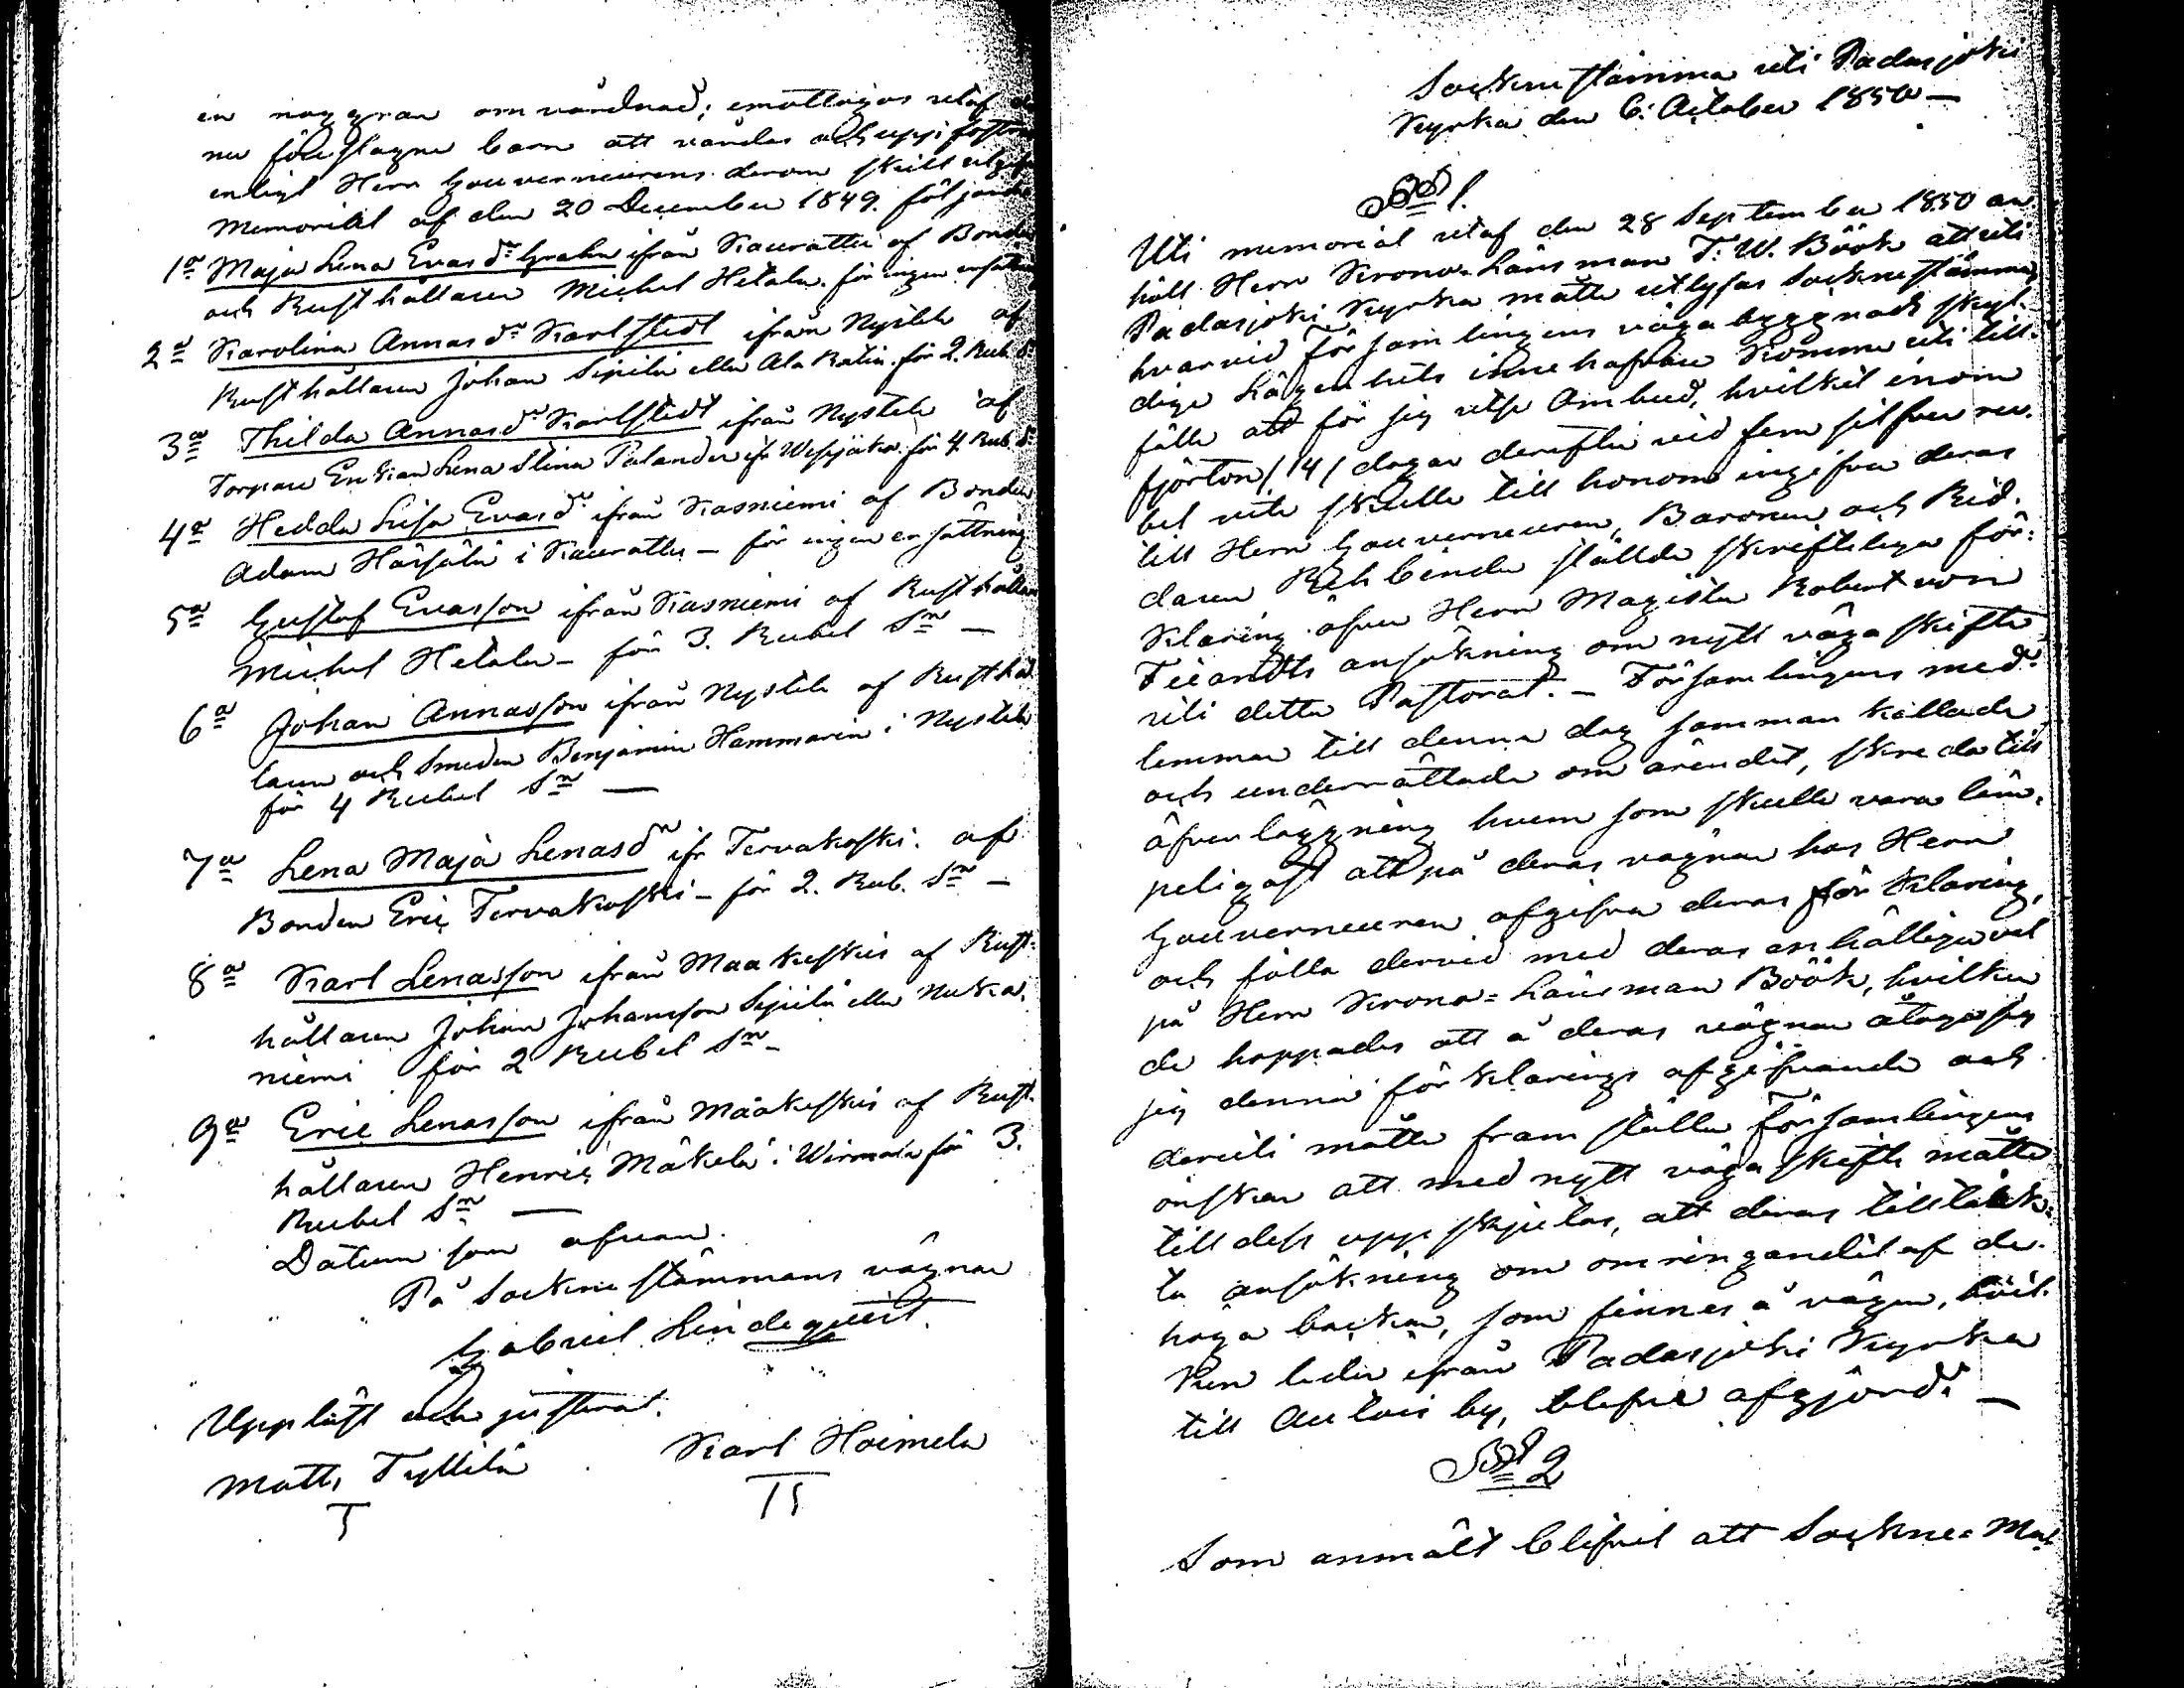 en noggran omvårdnad; emottagos utaf de
nu föreslagne barn att vårdas och uppfostras
enligt Herr Gouverneurens derom skill utgifne
Memorial af den 20 December 1849. följande
1a Maja Lena Evasdr Grahn ifrån Kaurattu af Bonden
och Rusthållaren Michel Hetala. för ingen ersättning
2a Karolina Annasdr Karlstedt ifrån Nystele af
Rusthållaren Johan Sipilä eller Ala Ratia. för 2. Rub. Sr
3a Thilda Annasdr Karlstedt ifrån Nystele af
Torpare Enkan Lena Stina Palander ifr Wesijako. för 4 Rub. Sr
4a Hedda Lisa Evasdr ifrån Kasniemi af Bonden
Adam Härsälä i Kaurattu – för ingen ersättning
5a Gustaf Evasson ifrån Kasniemi af Rusthållaren
Michel Hetala – för 3. Rubel Sr –
6a Johan Annasson ifrån Nystele af Rusthål
laren och Smeden Benjamin Hammarin i Nystele
för 4 Rubel Sr —
7a Lena Maja Lenasdr ifr Tervakoski. af
Bonden Eric Tervakoski – för 2. Rub. Sr –
8a Karl Lenasson ifrån Maakeskis af Rust-
hållaren Johan Johansson Sipilä eller Nuka-
niemi för 2 Rubel Sr –
9a Eric Lenasson ifrån Maakeskis af Rust-
hållaren Henric Mäkelä i Wirmaila för 3.
Rubel Sr —
Datum som ofvan.
På Sockne stämmans vägnar
Gabriel Lindequist.
Uppläst och justerat.
Matts Tyllilä Karl Hoimela
Sockne stämma uti Padasjoki
Kyrka den 6: October 1850 —
§ 1.
Uti memorial utaf den 28 September 1850 an
höll Herr Krono-Länsman T: W. Böök att uti
Padasjoki Kyrka måtte utlysas Sockne stämma,
hvarvid Församlingens väga byggnads skyl-
dige Lägenhets innehafvare komme uti till-
fälle att för sig utse Ombud, hvilket inom
fjorton (14) dagar derefter vid fem silfver ru-
bel vite skulle till honom ingifva deras
till Herr Gouverneuren, Baronen och Rid-
daren Rehbinder ställde skrifteliga för-
klaring öfver Herr Magister Robert von
Fieandts ansökning om nytt väga skifte
uti detta Pastorat. – Församlingens med-
lemmar till denna dag samman kallade
och underrättade om ärendet, skredo till
öfverläggning hvem som skulle vara läm-
peligast att på deras vägnar hos Herr
Gouverneuren afgifva deras förklaring,
och fölle dervid med deras enhälliga val
på Herr Krono-Länsman Böök, hvilken
de hoppades att å deras vägnar åtaga sig
denna förklarings afgifvande och
deruti måtte fram ställa församlingens
önskan att med nytt väga skifte måtte
till dess uppskjutas, att deras tilltänk-
ta ansökning om omringandet af de
höga backar, som finnes å vägen, hvil-
ken leder ifrån Padasjoki Kyrka
till Autois by, blefve afgjord. —
§ 2
Som anmält blifvit att Sockne-Mag